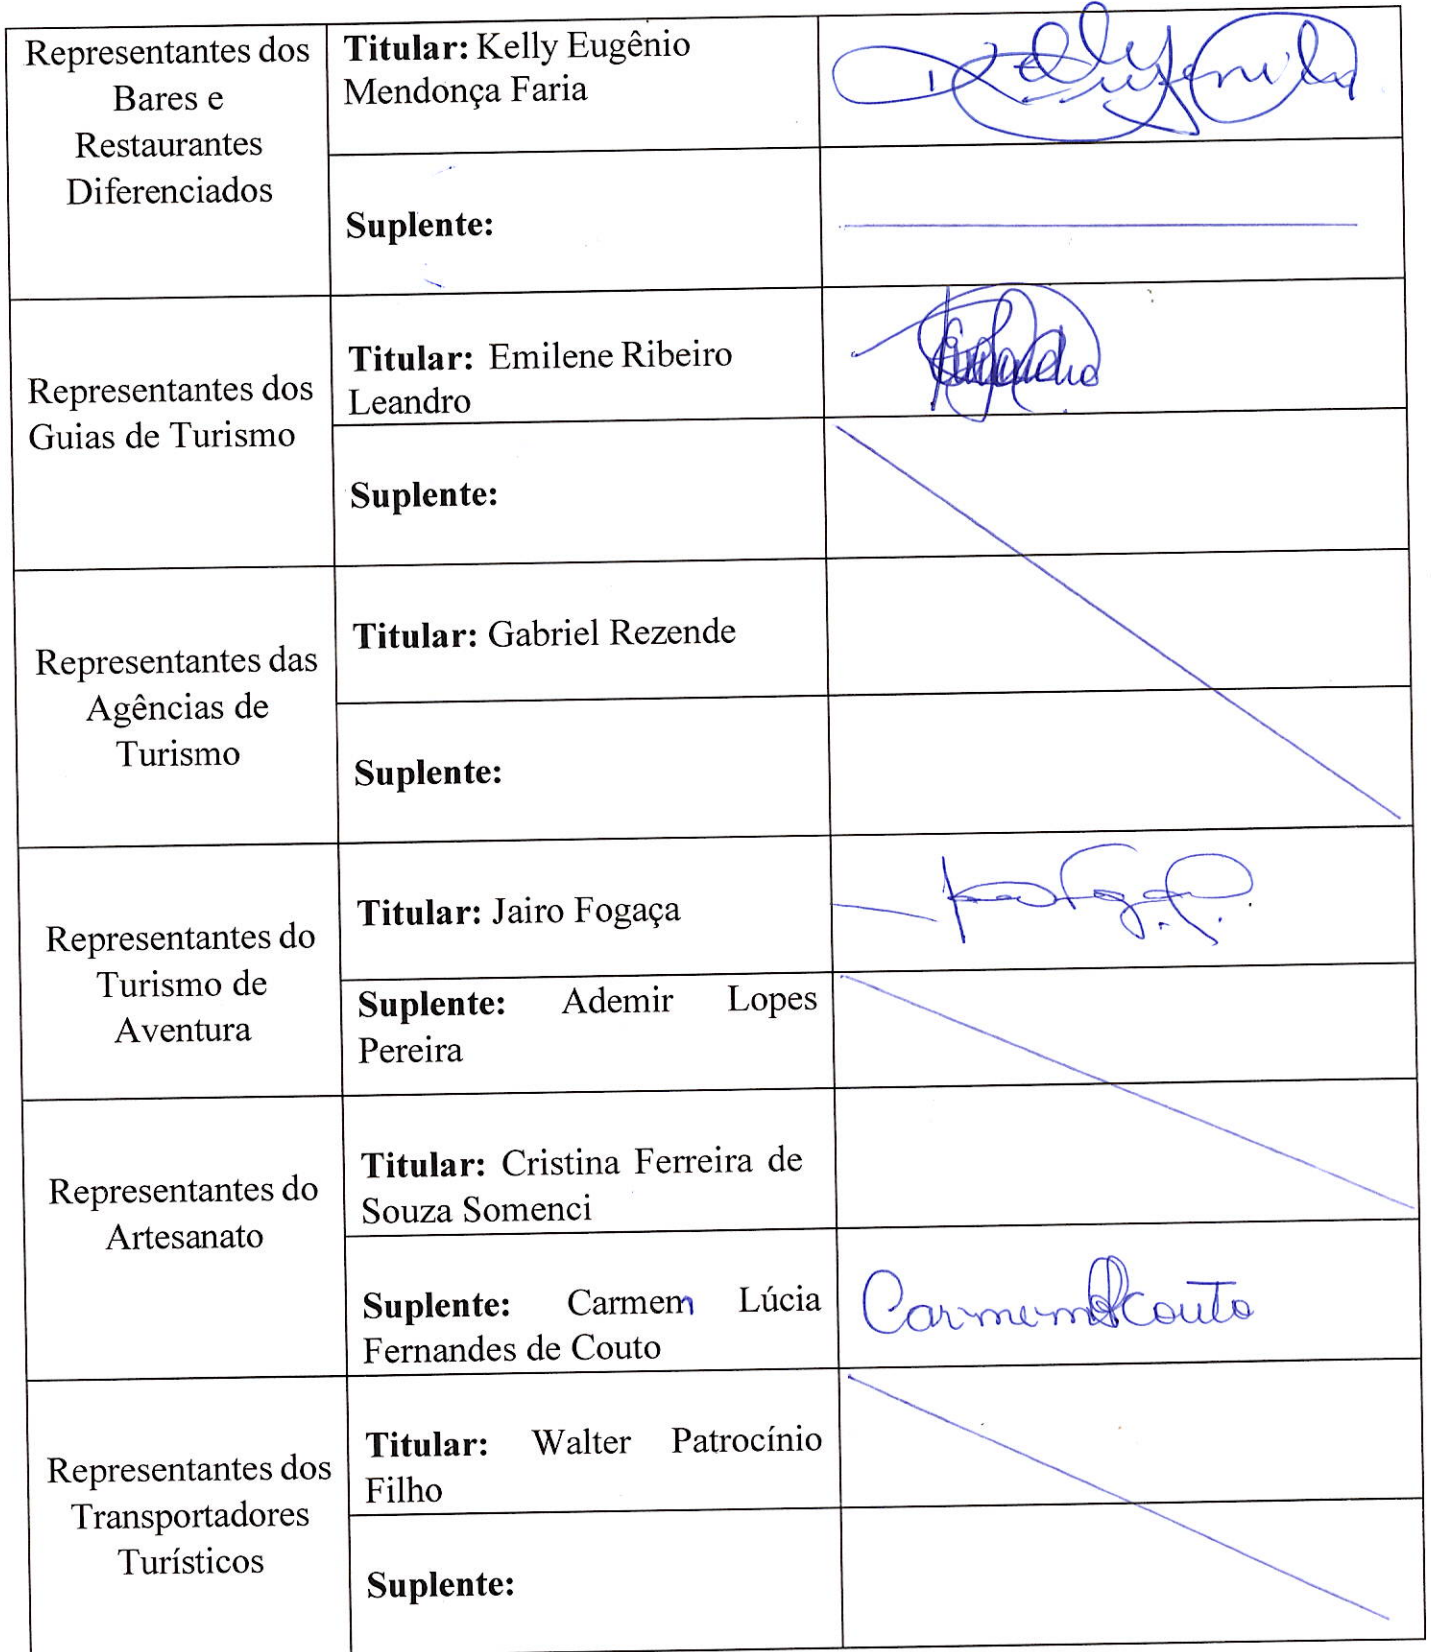 Representantes dos
Bares e
Restaurantes
Diferenciados
Titular: Kelly Eugênio
Mendonça Faria
Suplente:
Representantes dos
Guias de Turismo
Titular: Emilene Ribeiro
Leandro
Suplente:
Representantes das
Agências de
Turismo
Titular: Gabriel Rezende
Suplente:
Representantes do
Turismo de
Aventura
Titular: Jairo Fogaça
Suplente: Ademir Lopes
Pereira
Representantes do
Artesanato
Titular: Cristina Ferreira de
Souza Somenci
Suplente: Carmem Lúcia
Fernandes de Couto
Carmem Couto
Representantes dos
Transportadores
Turísticos
Titular: Walter Patrocínio
Filho
Suplente: